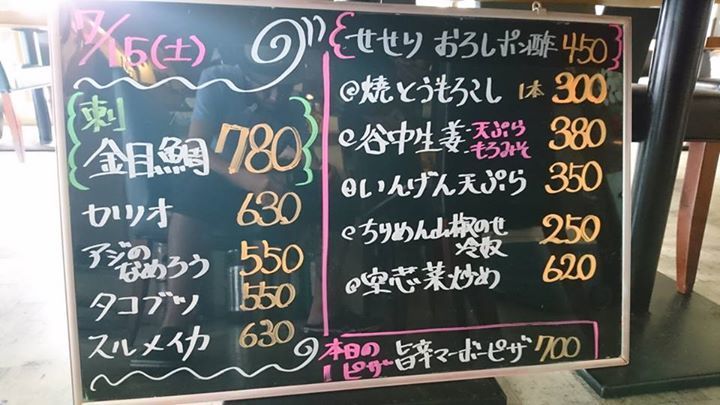 7/15(土)
刺
金目鯛 780
カツオ 630
アジの
なめろう 550
タコブツ 550
スルメイカ 630
せせり おろしポン酢 450
焼とうもろこし 1本 300
谷中生姜 天ぷら
もろみそ 380
いんげん天ぷら 350
ちりめん山椒のせ
冷奴 250
空芯菜炒め 620
本日の
ピザ 旨辛マーボーピザ 700